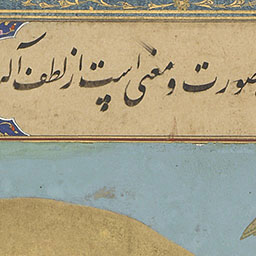 صورت و معنی است از لطف آله